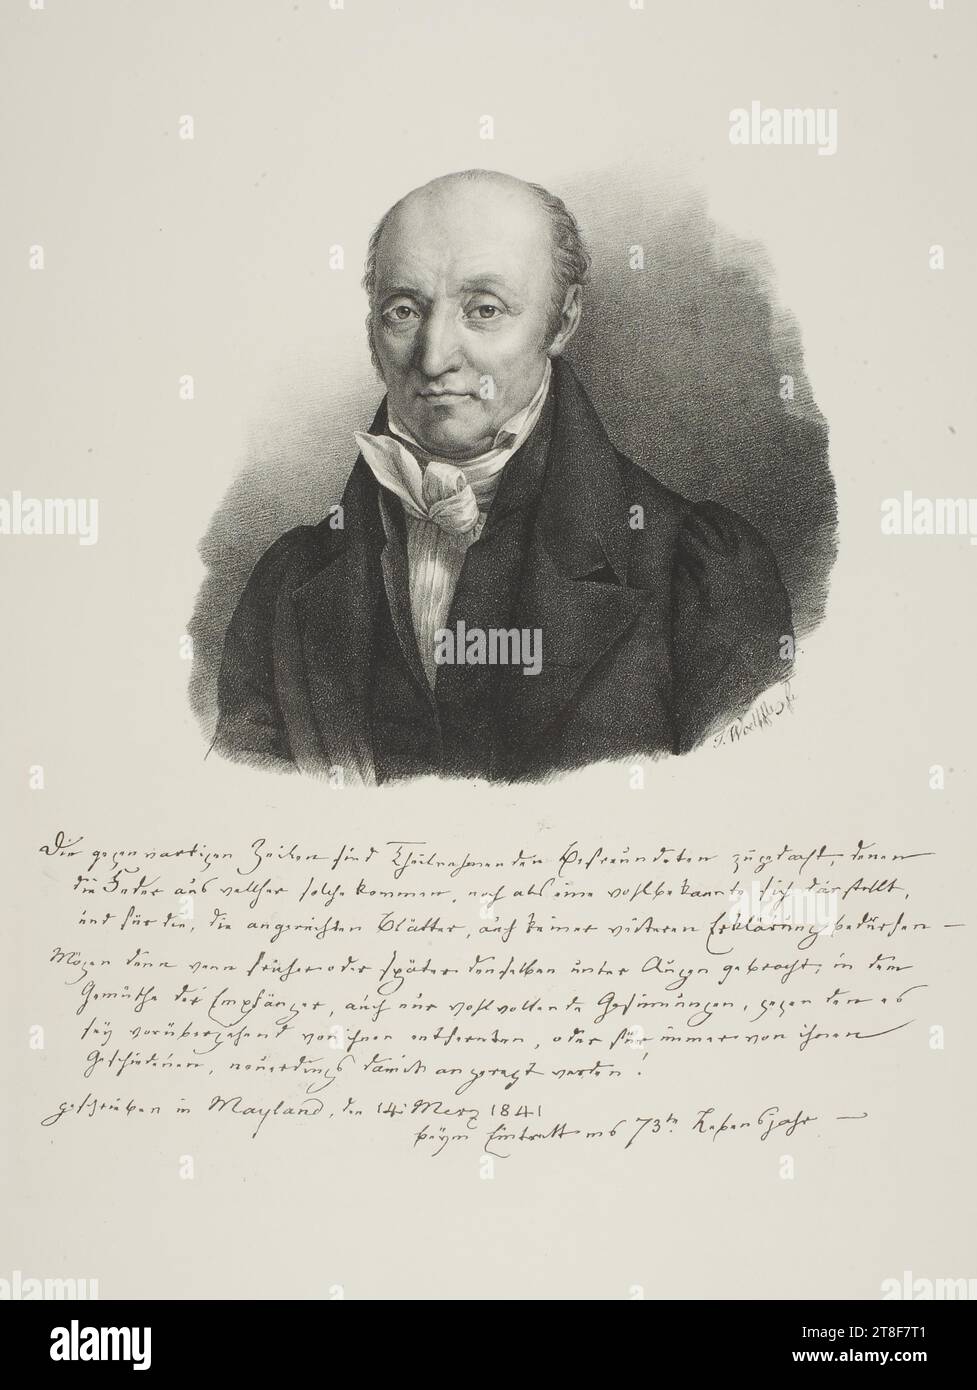 J. Woelffle fe.
Die gegenwärtigen Zeichen sind Theilnehmenden Befreundeten zugedacht, denen
die Feder aus welcher solche kommen, noch als eine wohlbekannte sich darstellt,
und für die, die angereihten Blätter, auch keiner weiteren Erklärung bedürfen —
Mögen denn wenn früher oder später denselben unter Augen gebracht, in dem
Gemüthe der Empfänger, auch nur wohlwollende Gesinnungen, gegen den es
sey vorübergehend von ihnen entfernten, oder für immer von ihnen
Geschiedenen, neuerdings damit angeregt werden!
geschrieben in Mayland, den 14. Merz 1841
beym Eintritt ins 73te Lebensjahr —
alamy
Image ID: 2T8F7T1
www.alamy.com